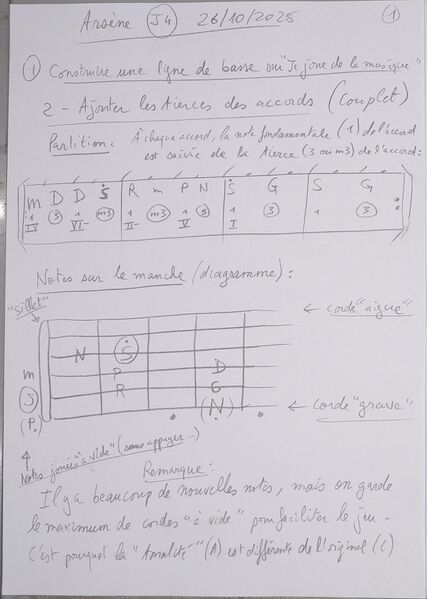 Arsène J4 26/10/2025 1
1 Construire une ligne de basse sur "Je joue de la musique"
2 - Ajouter les tierces des accords (Couplet)
Partition : A chaque accord, la note fondamentale (1) de l'accord
est suivie de la tierce (3 ou m3) de l'accord :
m D D S R m P N S G S G
1 3 1 m3 1 m3 1 3 1 3 1 3
IV VI- II- V I
Notes sur le manche (diagramme) :
"Sillet"
corde "aigue"
N S
m P D
S R G
(P. (N)
corde "grave"
Notes jouées "à vide" (sans appuyer...)
Remarque :
Il y a beaucoup de nouvelles notes, mais on garde
le maximum de cordes "à vide" pour faciliter le jeu -
C'est pourquoi la "tonalité" (A) est différente de l'original (C)